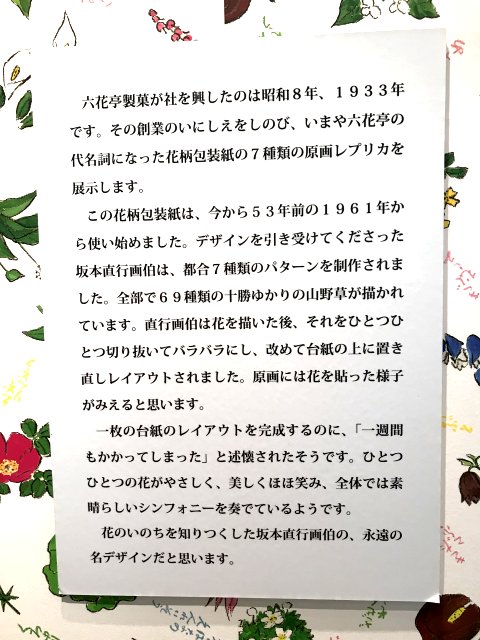 六花亭製菓が社を興したのは昭和８年、１９３３年
です。その創業のいにしえをしのび、いまや六花亭の
代名詞になった花柄包装紙の７種類の原画レプリカを
展示します。
この花柄包装紙は、今から５３年前の１９６１年か
ら使い始めました。デザインを引き受けてくださった
坂本直行画伯は、都合７種類のパターンを制作されま
した。全部で６９種類の十勝ゆかりの山野草が描かれ
ています。直行画伯は花を描いた後、それをひとつひ
とつ切り抜いてバラバラにし、改めて台紙の上に置き
直しレイアウトされました。原画には花を貼った様子
がみえると思います。
一枚の台紙のレイアウトを完成するのに、「一週間
もかかってしまった」と述懐されたそうです。ひとつ
ひとつの花がやさしく、美しくほほ笑み、全体では素
晴らしいシンフォニーを奏でているようです。
花のいのちを知りつくした坂本直行画伯の、永遠の
名デザインだと思います。